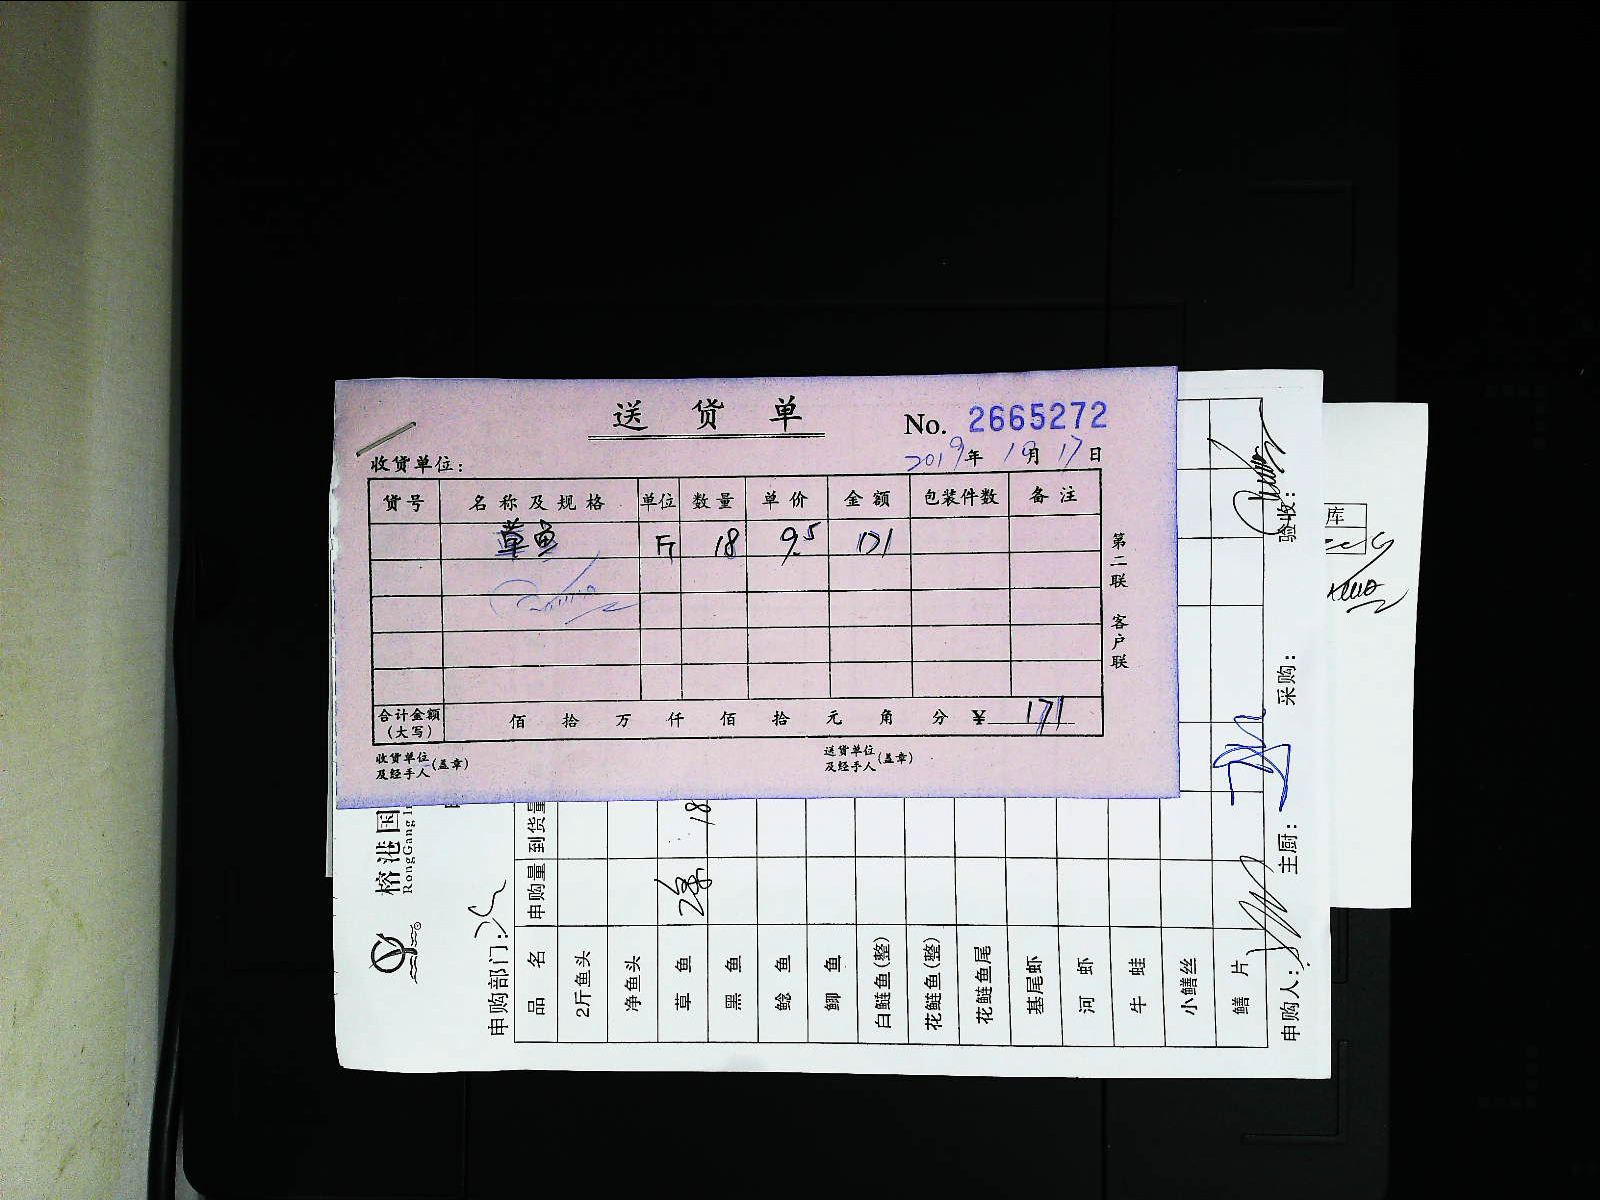 送 货 单
No. 2665272
2019年 10月 17日
收货单位：
货号 名称及规格 单位 数量 单价 金额 包装件数 备注
草鱼 斤 18 9.5 171
合计金额（大写） 佰 拾 万 仟 佰 拾 元 角 分 ¥ 171
收货单位及经手人（盖章） 送货单位及经手人（盖章）
第二联 客户联
榕港国
RongGang
申购部门：
品名 申购量 到货量
2斤鱼头
净鱼头
草鱼 2条 18
黑鱼
鲶鱼
鲫鱼
白鲢鱼(整)
花鲢鱼(整)
花鲢鱼尾
基尾虾
河虾
牛蛙
小鳝丝
鳝片
申购人： 主厨： 采购： 验收：
库